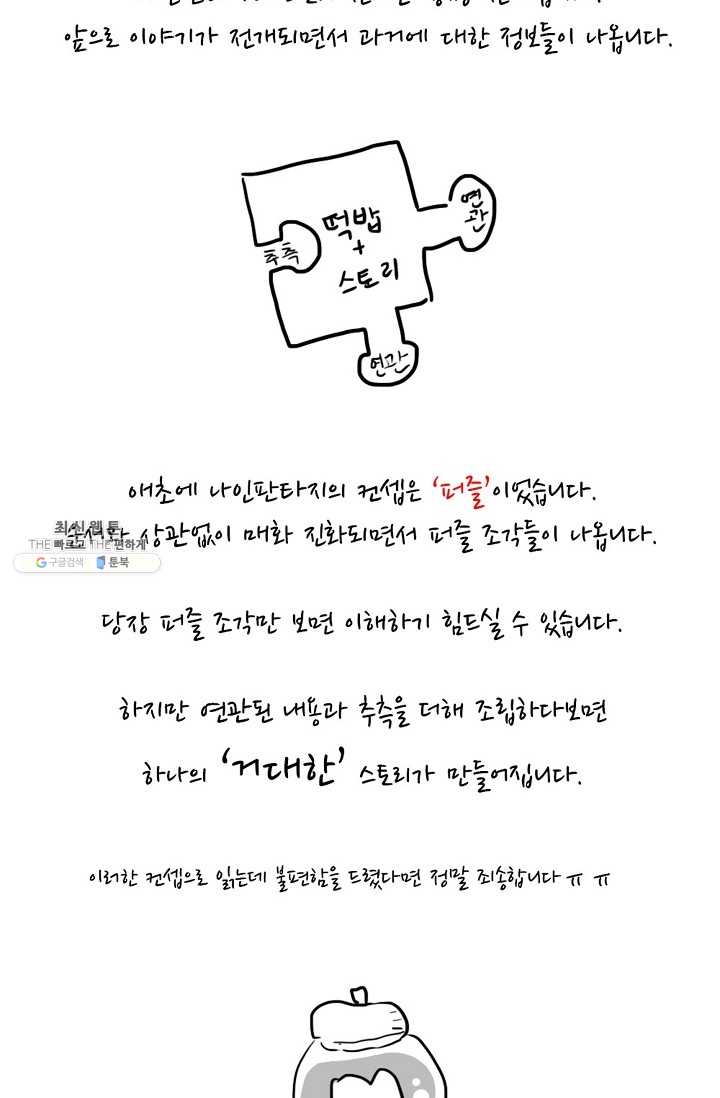 앞으로 이야기가 전개되면서 과거에 대한 정보들이 나옵니다.
연관
떡밥
+
추측
스토리
연관
애초에 나인판타지의 컨셉은 '퍼즐'이었습니다.
상관없이 매화 진화되면서 퍼즐 조각들이 나옵니다.
최신 웹툰
THE 빠르고 THE 편하게
구글검색 툰북
당장 퍼즐 조각만 보면 이해하기 힘드실 수 있습니다.
하지만 연관된 내용과 추측을 더해 조립하다보면
하나의 '거대한' 스토리가 만들어집니다.
이러한 컨셉으로 읽는데 불편함을 드렸다면 정말 죄송합니다 ㅠ ㅠ